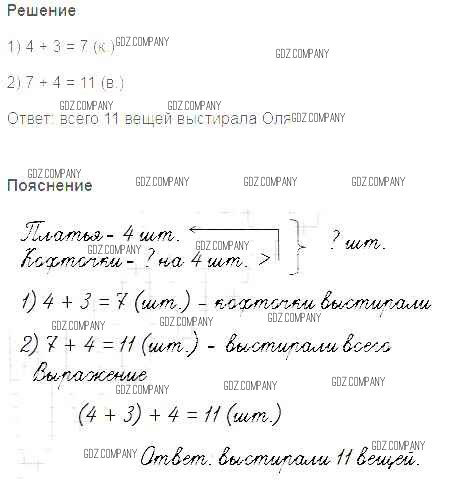 Решение
1) 4 + 3 = 7 (к.) GDZ.COMPANY
GDZ.COMPANY
2) 7 + 4 = 11 (в.)
GDZ.COMPANY GDZ.COMPANY
Ответ: всего 11 вещей выстирала Оля GDZ.COMPANY
GDZ.COMPANY
Пояснение GDZ.COMPANY GDZ.COMPANY GDZ.COMPANY
Платья - 4 шт. ? шт.
GDZ.COMPANY GDZ.COMPANY
Кофточки - ? на 4 шт. >
1) 4 + 3 = 7 (шт.) - кофточки выстирали
GDZ.COMPANY GDZ.COMPANY GDZ.COMPANY
2) 7 + 4 = 11 (шт.) - выстирали всего
Выражение
GDZ.COMPANY GDZ.COMPANY GDZ.COMPANY
(4 + 3) + 4 = 11 (шт.)
GDZ.COMPANY GDZ.COMPANY
Ответ. выстирали 11 вещей.